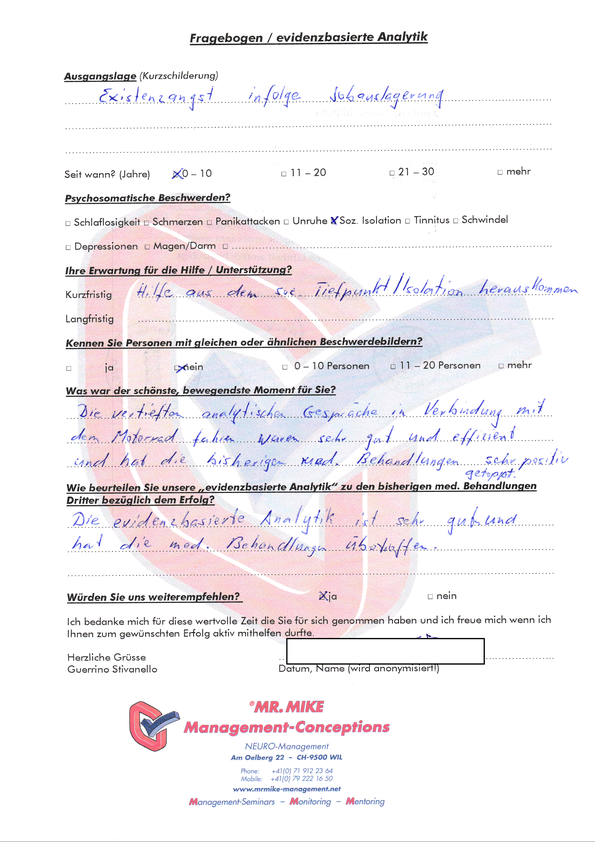 Fragebogen / evidenzbasierte Analytik
Ausgangslage (Kurzschilderung)
Existenzangst infolge Jobauslagerung
Seit wann? (Jahre) ☒ 0 – 10 □ 11 – 20 □ 21 – 30 □ mehr
Psychosomatische Beschwerden?
□ Schlaflosigkeit □ Schmerzen □ Panikattacken □ Unruhe ☒ Soz. Isolation □ Tinnitus □ Schwindel
□ Depressionen □ Magen/Darm □
Ihre Erwartung für die Hilfe / Unterstützung?
Kurzfristig Hilfe aus dem Tiefpunkt/Isolation herauskommen
Langfristig
Kennen Sie Personen mit gleichen oder ähnlichen Beschwerdebildern?
□ ja ☒ nein □ 0 – 10 Personen □ 11 – 20 Personen □ mehr
Was war der schönste, bewegendste Moment für Sie?
Die vertieften analytischen Gespräche in Verbindung mit
dem Motorrad fahren waren sehr gut und effizient
und hat die bisherigen med. Behandlungen sehr positiv
getoppt.
Wie beurteilen Sie unsere „evidenzbasierte Analytik" zu den bisherigen med. Behandlungen
Dritter bezüglich dem Erfolg?
Die evidenzbasierte Analytik ist sehr gut und
hat die med. Behandlungen übertroffen.
Würden Sie uns weiterempfehlen? ☒ ja □ nein
Ich bedanke mich für diese wertvolle Zeit die Sie für sich genommen haben und ich freue mich wenn ich
Ihnen zum gewünschten Erfolg aktiv mithelfen durfte.
Herzliche Grüsse
Guerrino Stivanello Datum, Name (wird anonymisiert!)
®MR. MIKE
Management-Conceptions
NEURO-Management
Am Oelberg 22 – CH-9500 WIL
Phone: +41(0) 71 912 23 64
Mobile: +41(0) 79 222 16 50
www.mrmike-management.net
Management-Seminars – Monitoring – Mentoring